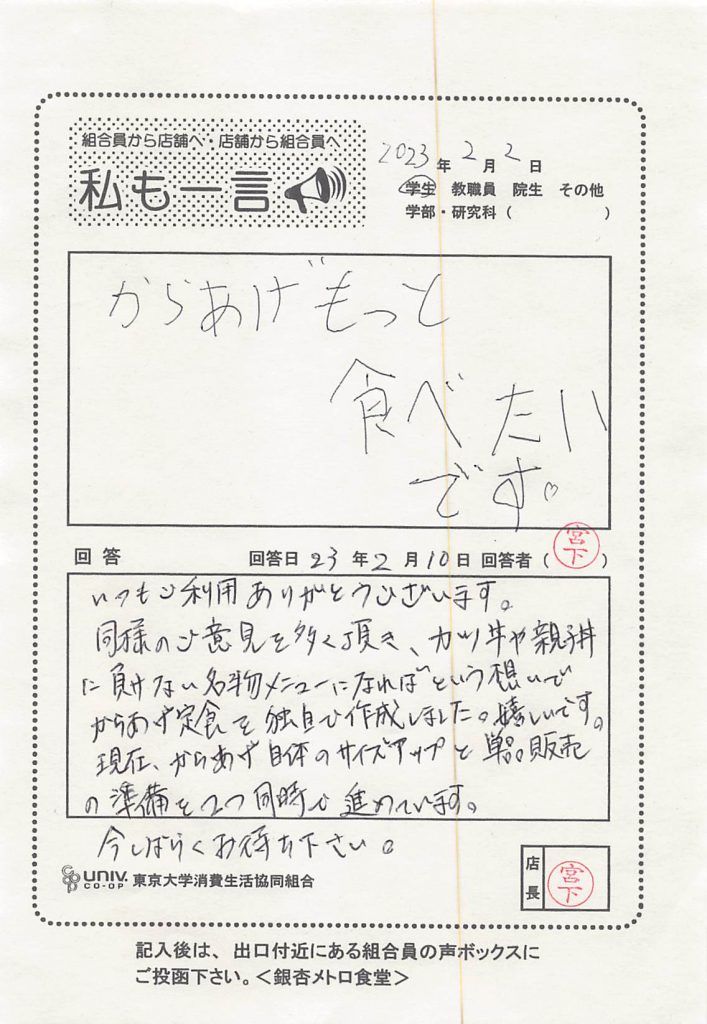 組合員から店舗へ・店舗から組合員へ
私も一言
2023年2月2日
学生 教職員 院生 その他
学部・研究科 ( )
からあげもっと
食べたい
です。
回答 回答日 23年2月10日 回答者 (宮下)
いつもご利用ありがとうございます。
同様のご意見を多く頂き、カツ丼や親子丼
に負けない名物メニューになればという想いで
からあげ定食を独自で作成しました。嬉しいです。
現在、からあげ自体のサイズアップと単品販売
の準備を2つ同時で進めています。
今しばらくお待ち下さい。
店長 宮下
UNIV. CO-OP 東京大学消費生活協同組合
記入後は、出口付近にある組合員の声ボックスに
ご投函下さい。<銀杏メトロ食堂>